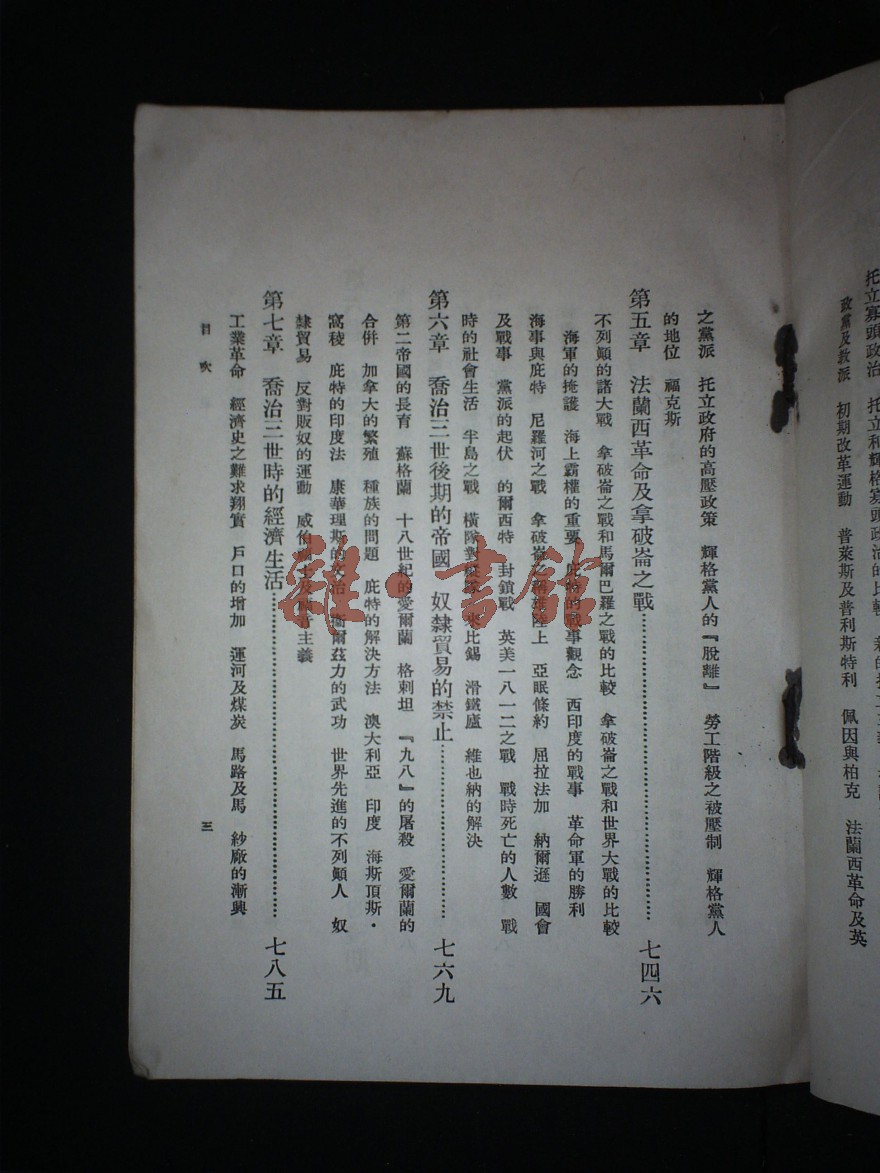 托立寡頭政治 托立和輝格寡頭政治的比較
政黨及教派 初期改革運動 普萊斯及普利斯特利 佩因與柏克 法蘭西革命及英
之黨派 托立政府的高壓政策 輝格黨人的『脫離』 勞工階級之被壓制 輝格黨人
的地位 福克斯
第五章 法蘭西革命及拿破崙之戰……七四六
不列顛的諸大戰 拿破崙之戰和馬爾巴羅之戰的比較 拿破崙之戰和世界大戰的比較
海軍的掩護 海上霸權的重要 庇特的戰事觀念 西印度的戰事 革命軍的勝利
海事與庇特 尼羅河之戰 拿破崙之稱雄陸上 亞眠條約 屈拉法加 納爾遜 國會
及戰事 黨派的起伏 的爾西特 封鎖戰 英美一八一二之戰 戰時死亡的人數 戰
時的社會生活 半島之戰 橫隊對縱隊 來比錫 滑鐵廬 維也納的解決
第六章 喬治三世後期的帝國 奴隸貿易的禁止……七六九
第二帝國的長育 蘇格蘭 十八世紀的愛爾蘭 格剌坦 『九八』的屠殺 愛爾蘭的
合併 加拿大的繁殖 種族的問題 庇特的解決方法 澳大利亞 印度 海斯頂斯・
窩稜 庇特的印度法 康華理斯的文治 衛爾茲力的武功 世界先進的不列顛人 奴
隸貿易 反對販奴的運動 威伯福士及福音主義
第七章 喬治三世時的經濟生活……七八五
工業革命 經濟史之難求翔實 戶口的增加 運河及煤炭 馬路及馬 紗廠的漸興
目次
三
雜・書館